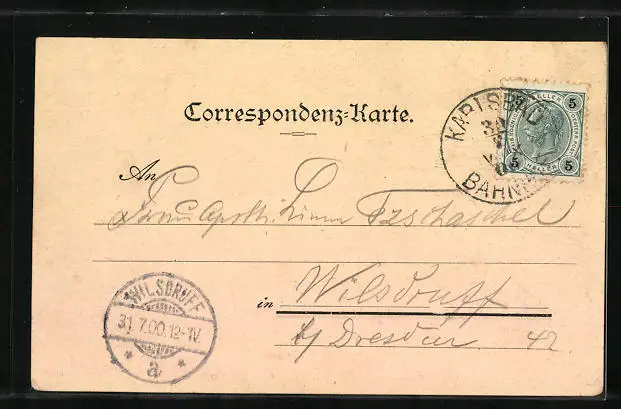 Correspondenz-Karte.
KARLSBAD
BAHNH
5 5
HELLER
5 5
HELLER
An
Frau Apoth. Tzschaschel
WILSDRUFF
31.7.00.12-1V.
* a *
in Wilsdruff
b/ Dresden